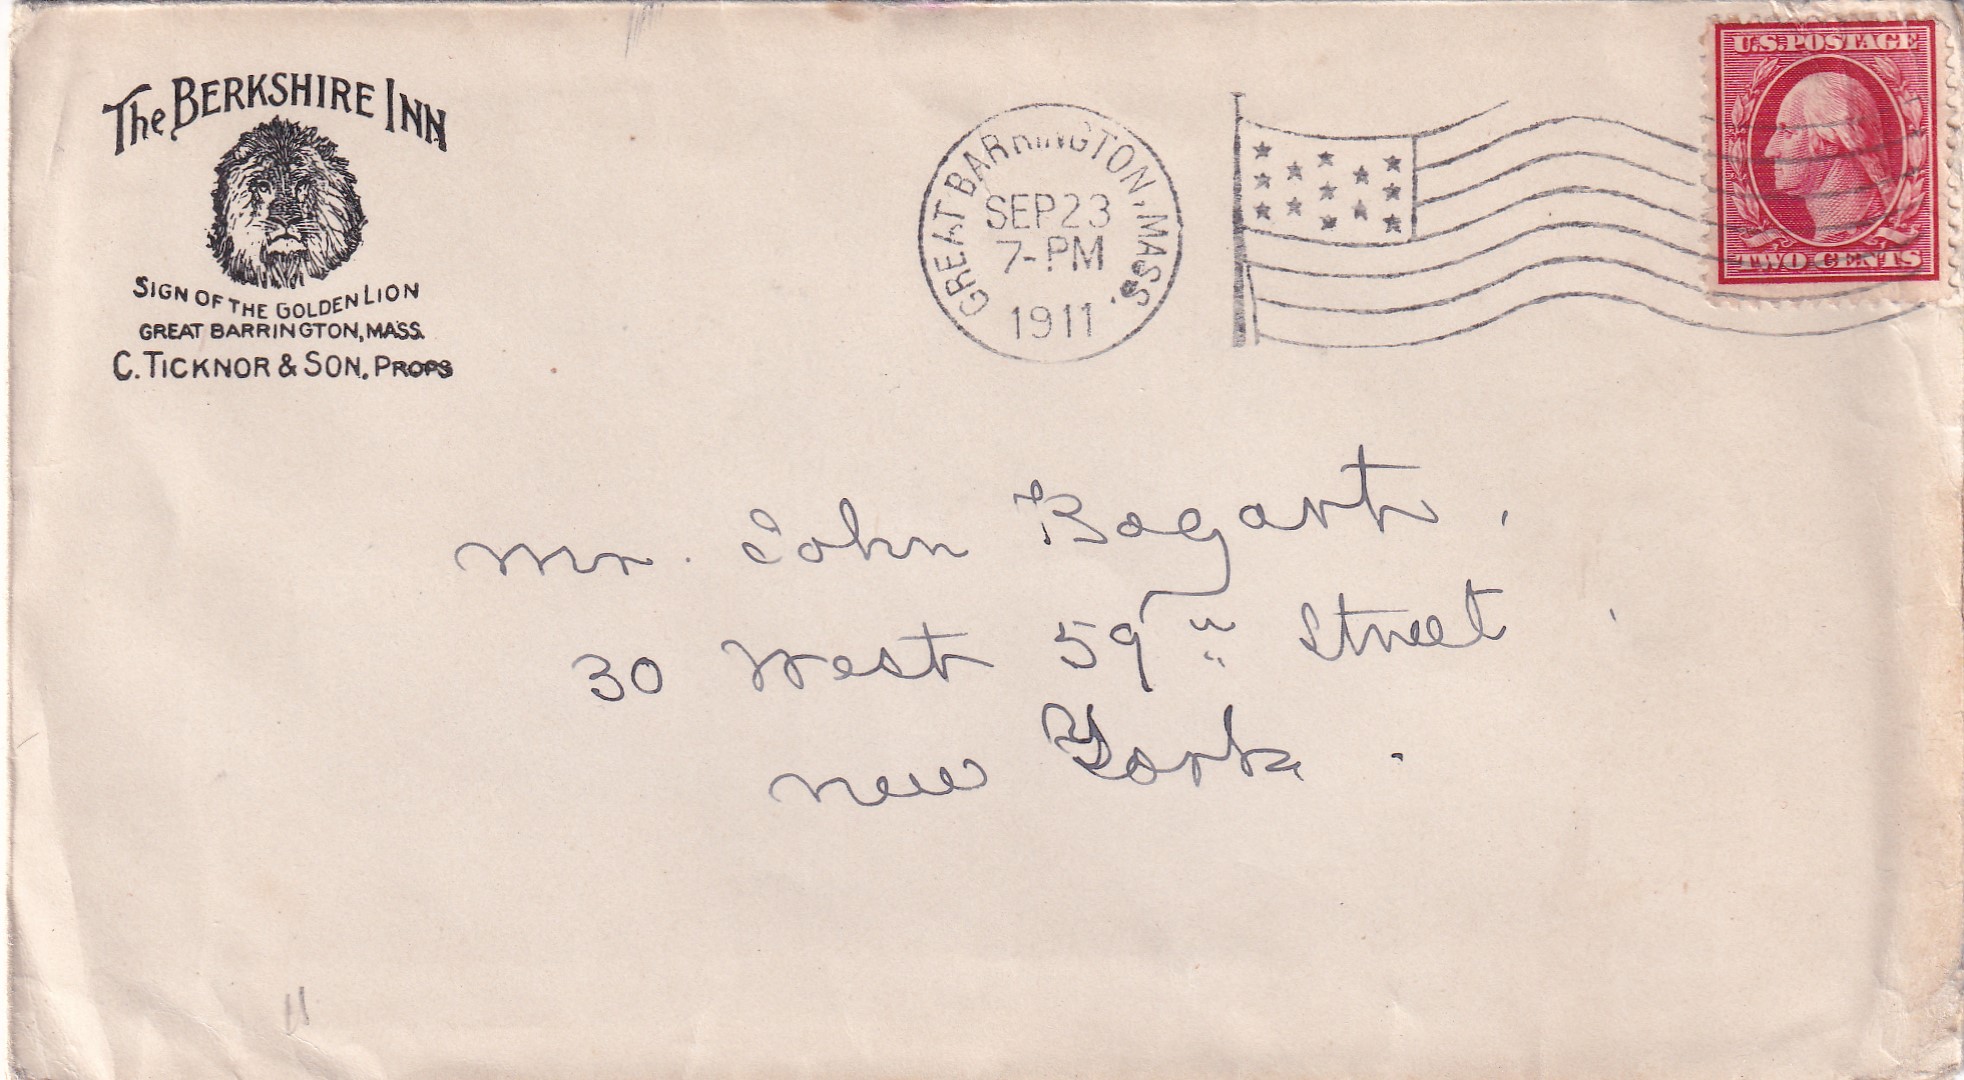 The BERKSHIRE INN
SIGN OF THE GOLDEN LION
GREAT BARRINGTON, MASS.
C. TICKNOR & SON, PROPS
GREAT BARRINGTON, MASS.
SEP 23
7-PM
1911
U.S. POSTAGE
TWO CENTS
Mr. John Bogart,
30 West 59th Street
New York.
11